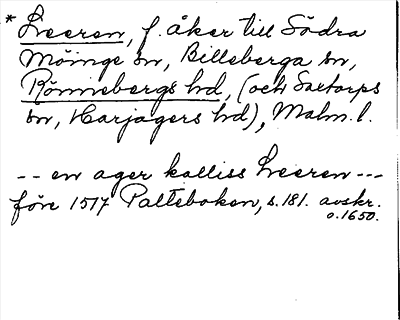 * Lveeren, f. åker till Södra
Möinge sn, Billeberga sn,
Rönnebergs hd, (och Saxtorps
sn, Harjagers hd), Malm. l.
-- en ager kalliss Lveeren ---
före 1517 Palteboken, s. 181. avskr.
o. 1650.